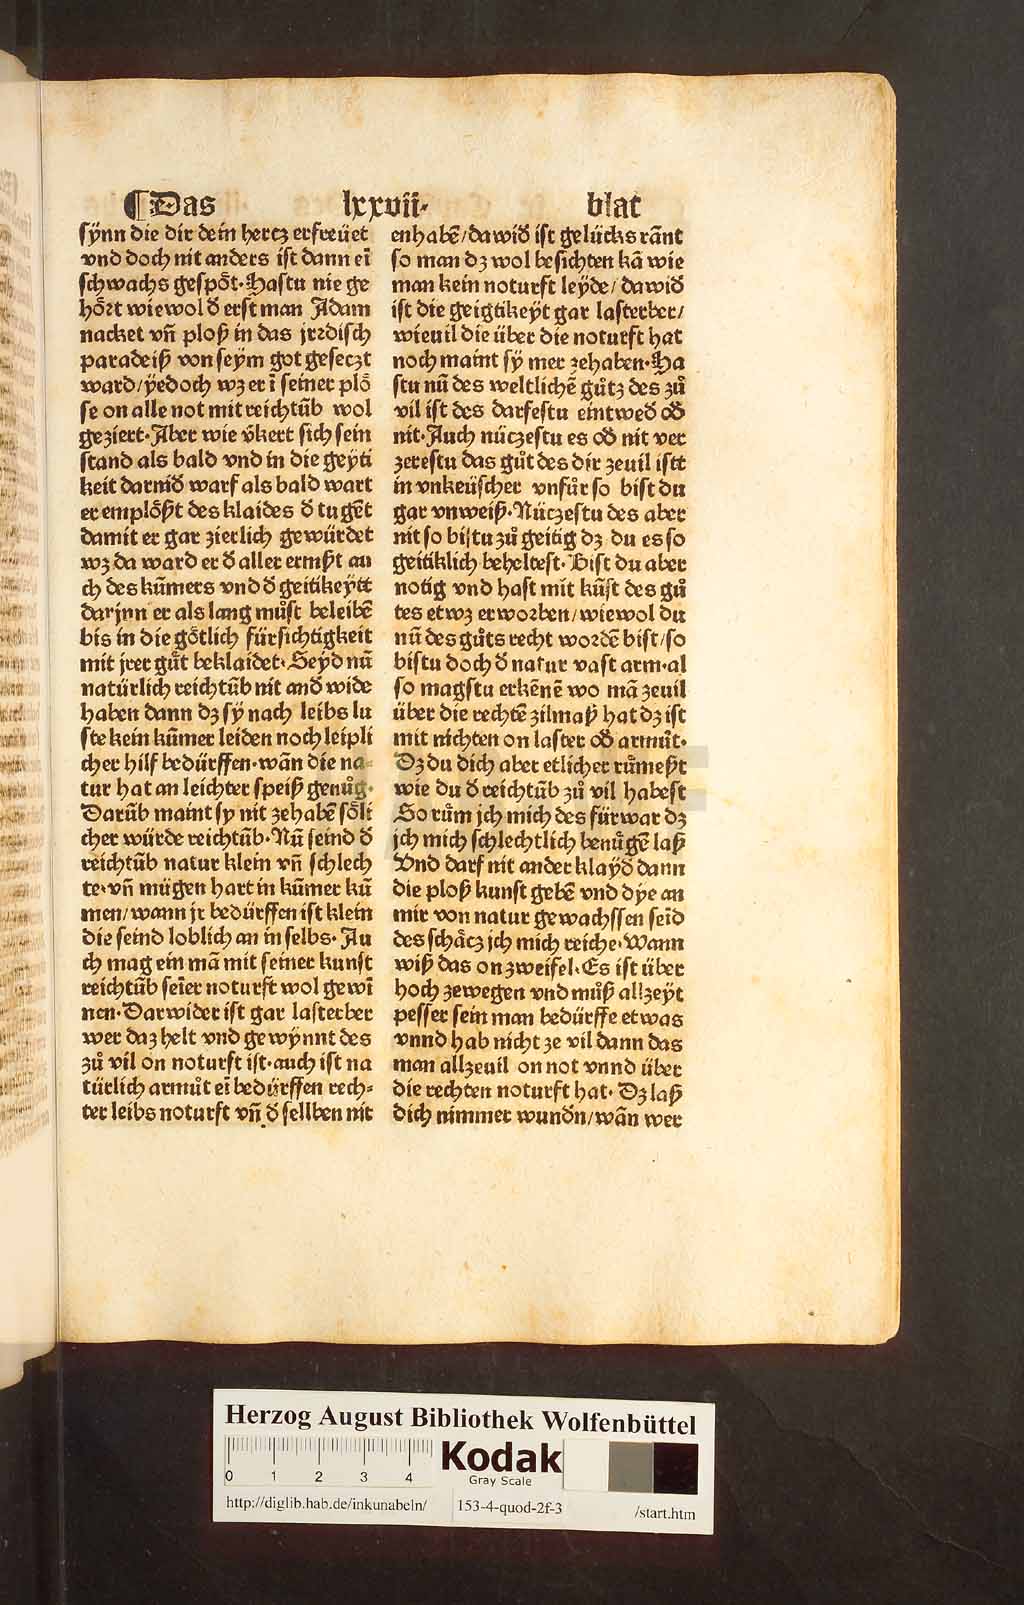 ¶Das lxxvii· blat
sÿnn die dir dein hertz erfreüet
vnd doch nit anders ist dann eī
schwachs gespȫt·Hastu nie ge
hört wiewol đ erst man Adam
nacket vn̄ ploß in das jrrdisch
paradeiß von seÿm got gesectzt
ward/ÿedoch wz er ī seiner plö
se on alle not mit reichtūb wol
geziert·Aber wie v̄kert sich sein
stand als bald vnd in die geyti
keit darniđ warf als bald wart
er emplößt des klaides đ tugēt
damit er gar zierlich gewürdet
wz da ward er đ aller ermßt au
ch des kūmers vnd đ geitikeÿtt
darjnn er als lang můst beleibē
bis in die götlich fürsichtigkeit
mit jrer gůt beklaidet·Seÿd nū
natürlich reichtūb nit anđ wide
haben dann dz sÿ nach leibs lu
ste kein kūmer leiden noch leipli
cher hilf bedürffen·wān die na-
tur hat an leichter speiß genůg·
Darūb maint sy nit zehabē söli
cher würde reichtūb·Nū seind đ
reichtūb natur klein vn̄ schlech
te·vn̄ mügen hart in kūmer kū
men/wann jr bedürffen ist klein
die seind loblich an in selbs·Au
ch mag ein mā mit seiner kunst
reichtūb seīer noturft wol gewī
nen·Darwider ist gar lasterber
wer daz helt vnd gewÿnnt des
zů vil on noturft ist·auch ist na
türlich armůt eī bedürffen rech=
ter leibs noturft vn̄ đ sellben nit
enhabē/dawiđ ist gelücks rānt
so man dz wol besichten kā wie
man kein noturft leÿde/dawiđ
ist die geigtikeÿt gar lasterber/
wieuil die über die noturft hat
noch maint sÿ mer zehaben·Ha
stu nū des weltlichē gůtz des zů
vil ist des darfestu eintweđ ođ
nit·Auch nüczestu es ođ nit ver
zerestu das gůt des dir zeuil istt
in vnkeüscher vnfůr so bist du
gar vnweiß·Nüczestu des aber
nit so bistu zů geitig dz du es so
geitiklich beheltest·Bist du aber
notig vnd hast mit kūst des gů
tes etwz erworben/wiewol du
nū des gůts recht wordē bist/so
bistu doch đ natur vast arm·al
so magstu erkēnē wo mā zeuil
über die rechtē zilmaß hat dz ist
mit nichten on laster ođ armůt·
Dz du dich aber etlicher růmeßt
wie du đ reichtūb zů vil habest
So rům jch mich des fürwar dz
jch mich schlechtlich benůgē laß
Vnd darf nit ander klaÿđ dann
die ploß kunst gebē vnd dÿe an
mir von natur gewachssen seīd
des schätz jch mich reiche·Wann
wiß das on zweifel·Es ist über
hoch zewegen vnd můß allzeÿt
pesser sein man bedürffe etwas
vnnd hab nicht ze vil dann das
man allzeuil on not vnnd über
die rechten noturft hat· Dz laß
dich nimmer wunđn/wān wer
Herzog August Bibliothek Wolfenbüttel
0 1 2 3 4
Kodak
Gray Scale
http://diglib.hab.de/inkunabeln/ 153-4-quod-2f-3 /start.htm